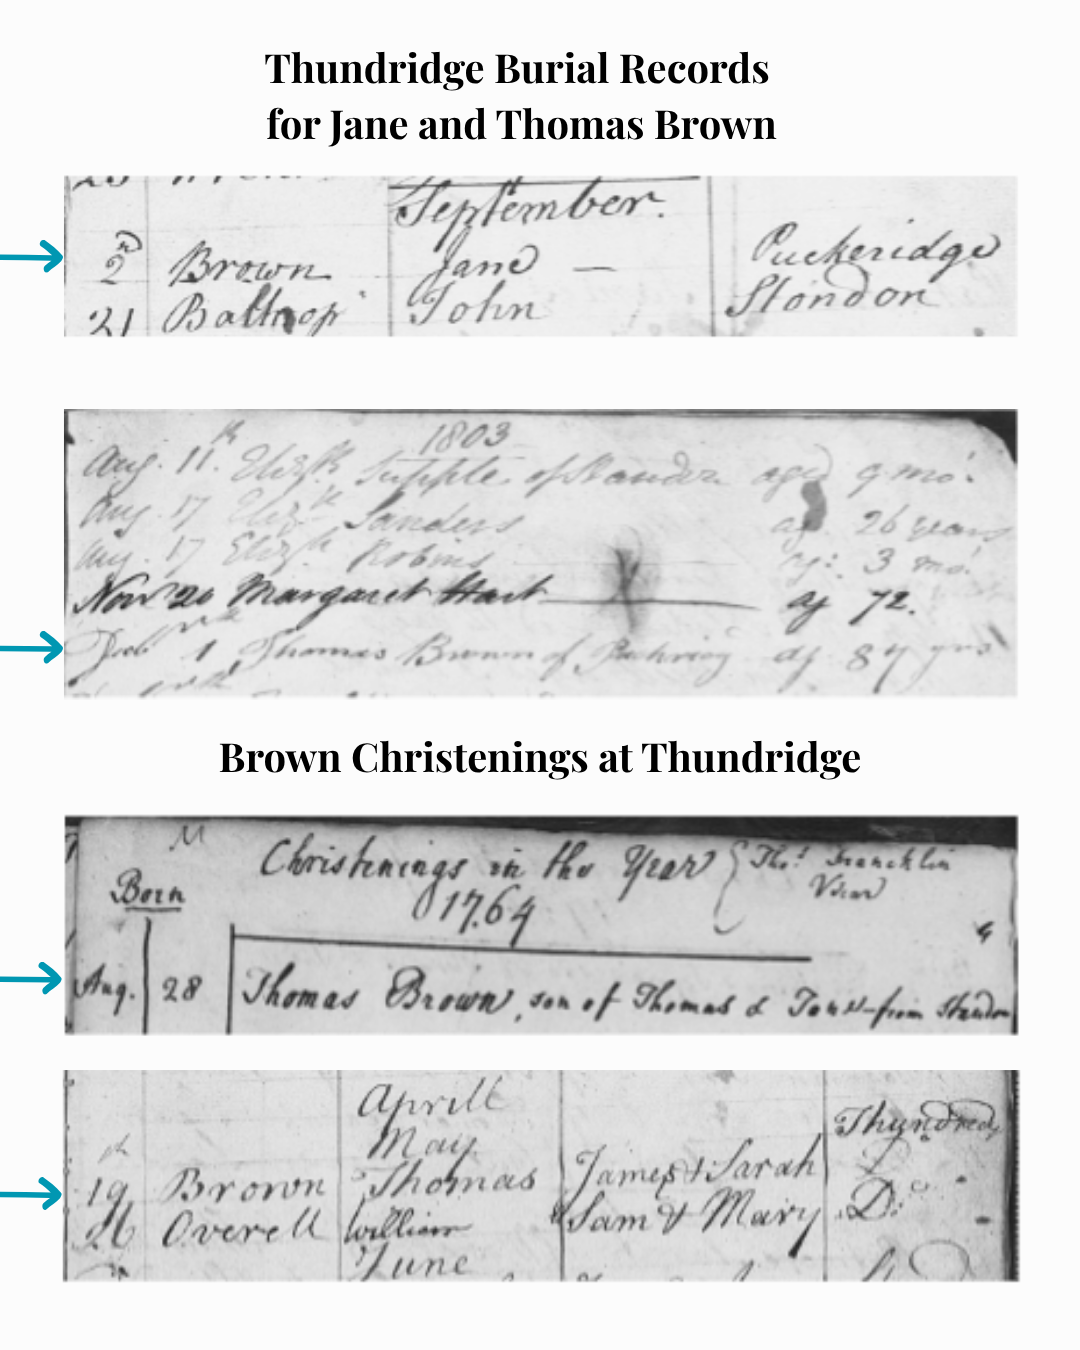 Thundridge Burial Records
for Jane and Thomas Brown
September.
2d Brown Jane — Puckeridge
21 John Stondon
1803
Aug. 11th Elizth Supple of Standon aged 9 mo:
Aug. 17 Elizth Sanders ag 26 years
Aug. 17 Elizth Robins ag: 3 mo:
Novr 20 Margaret Hart ag 72.
1 Thomas Brown of ag 87 yrs
Brown Christenings at Thundridge
Christenings in the Year
1764
Thos: Francklin
Vicar
Born
Aug. 28 Thomas Brown, son of Thomas & Jane from Standon
Aprill
May Thundredg
19 Brown Thomas James & Sarah Do
26 Overell William Sam & Mary Do
June